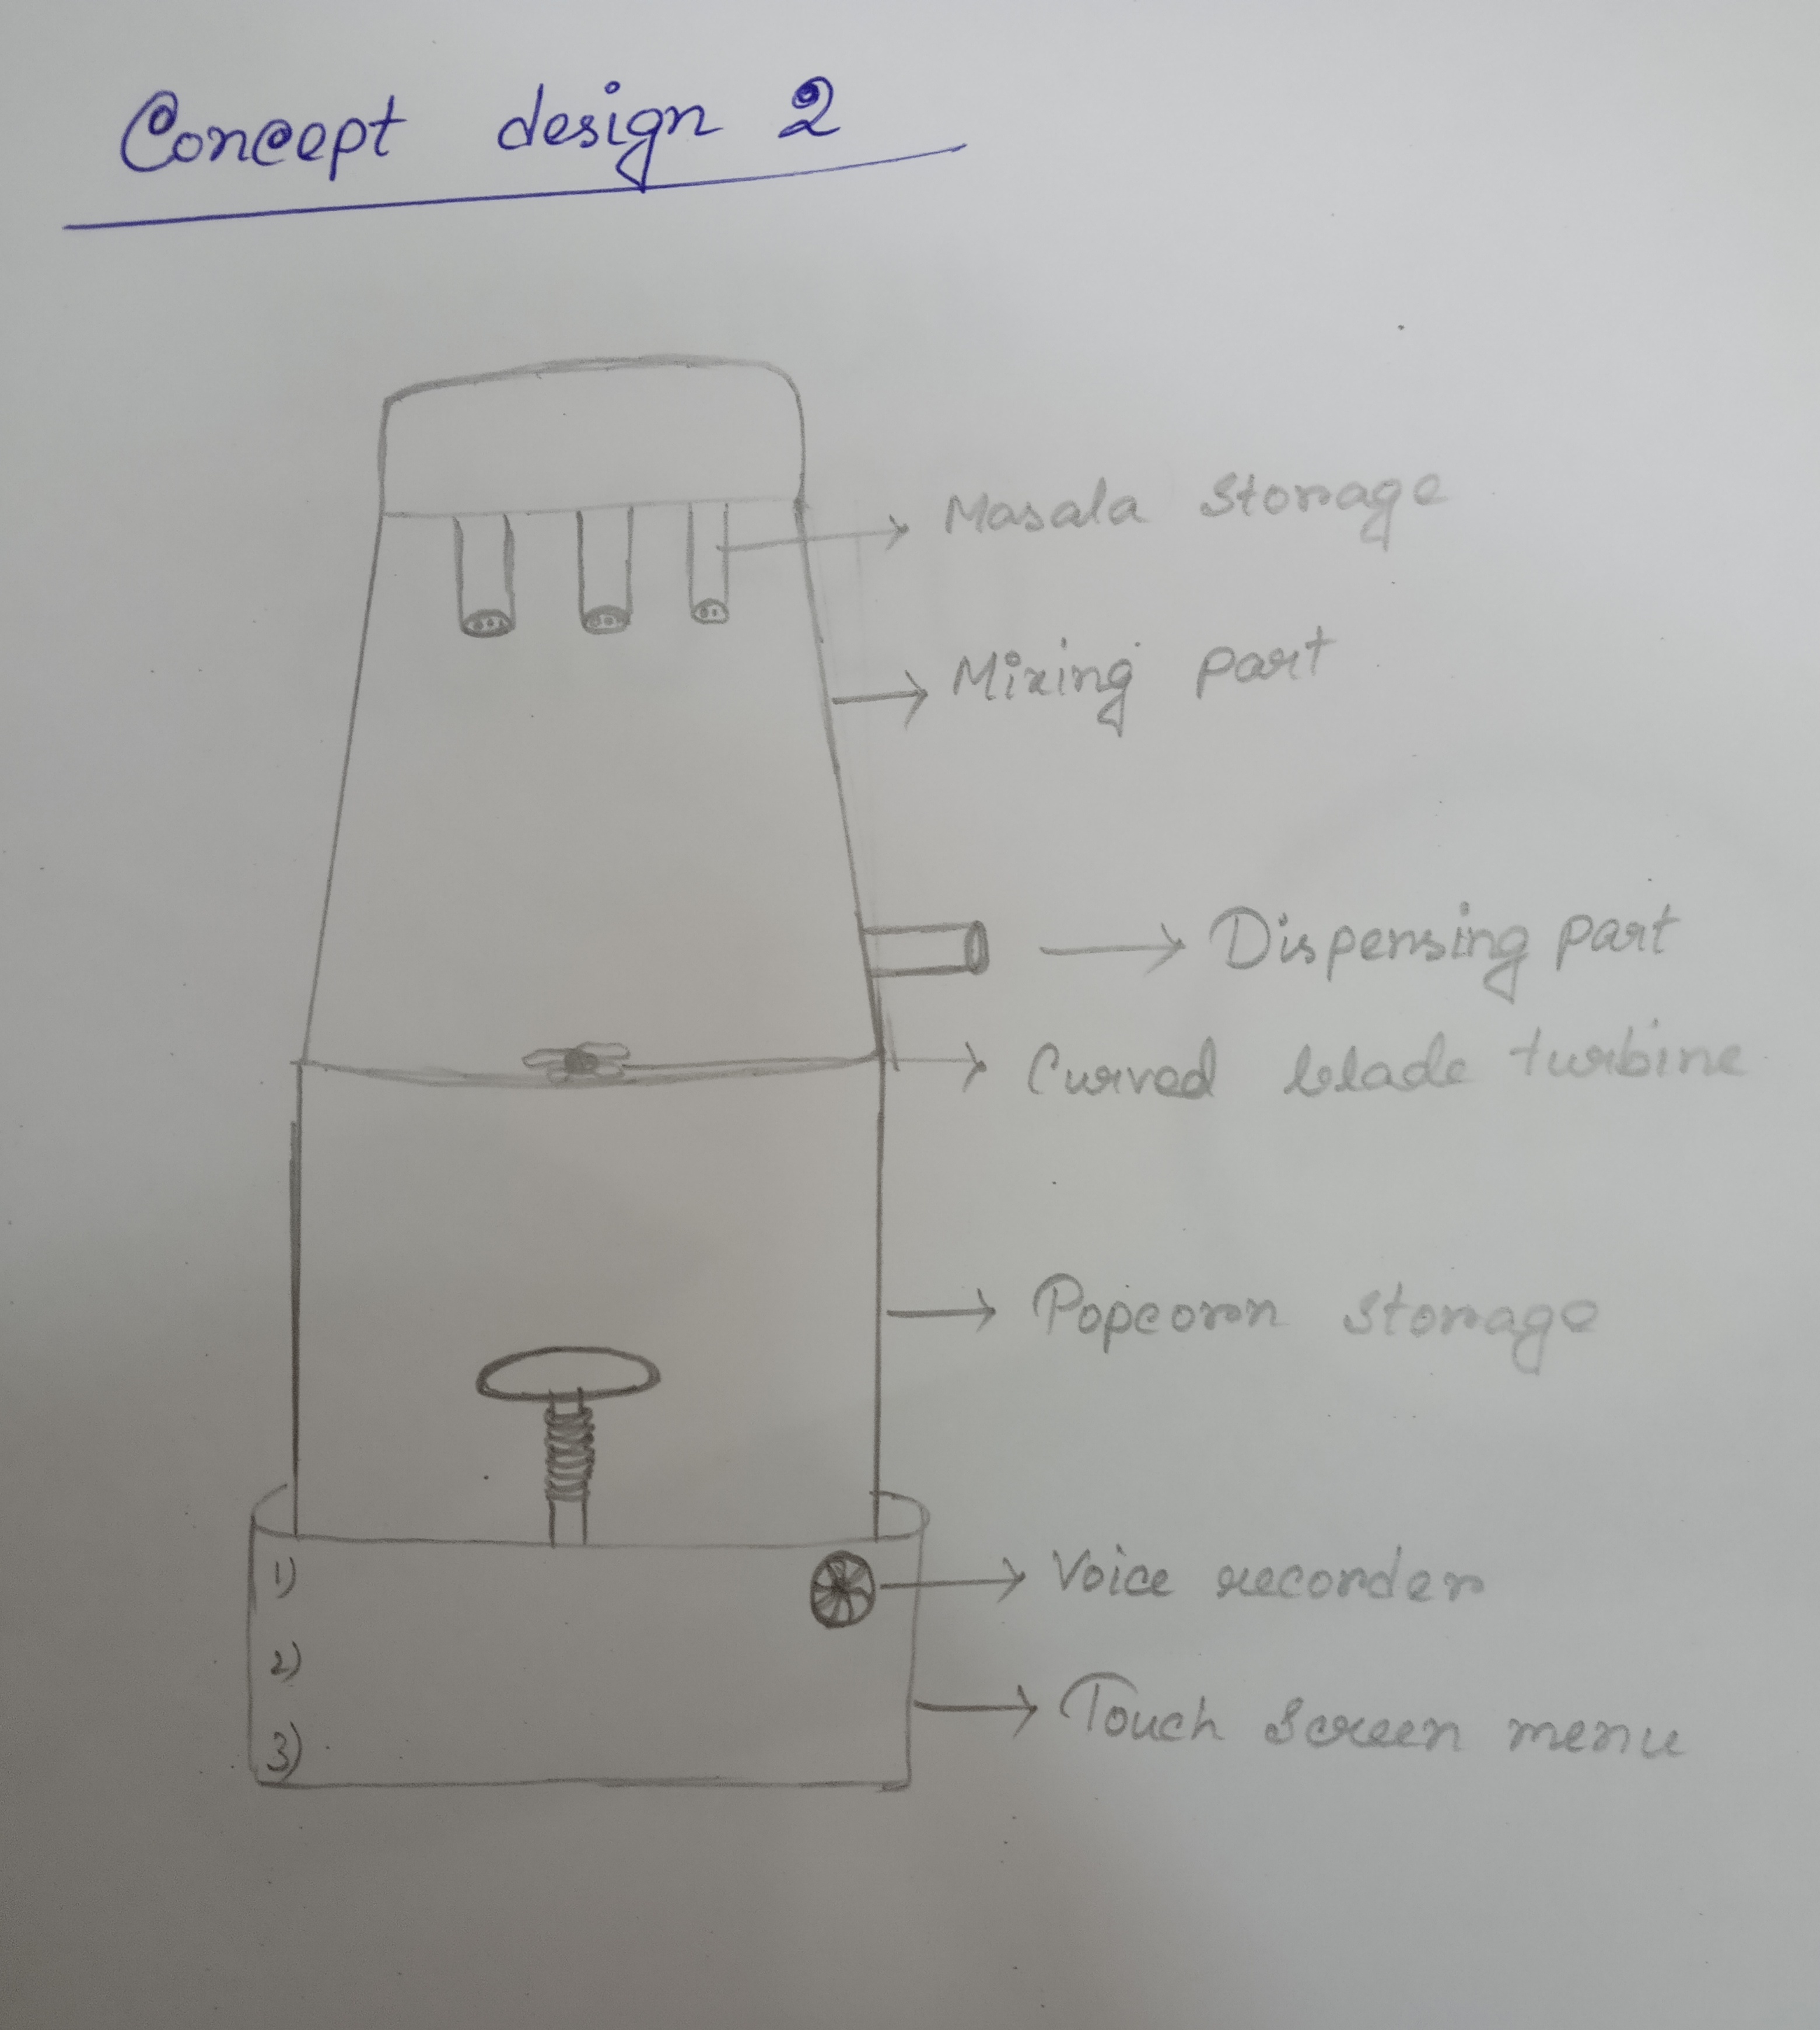 Concept design 2
Masala storage
Mixing part
Dispensing part
Curved blade turbine
Popcorn storage
1)
Voice recorder
2)
Touch screen menu
3)